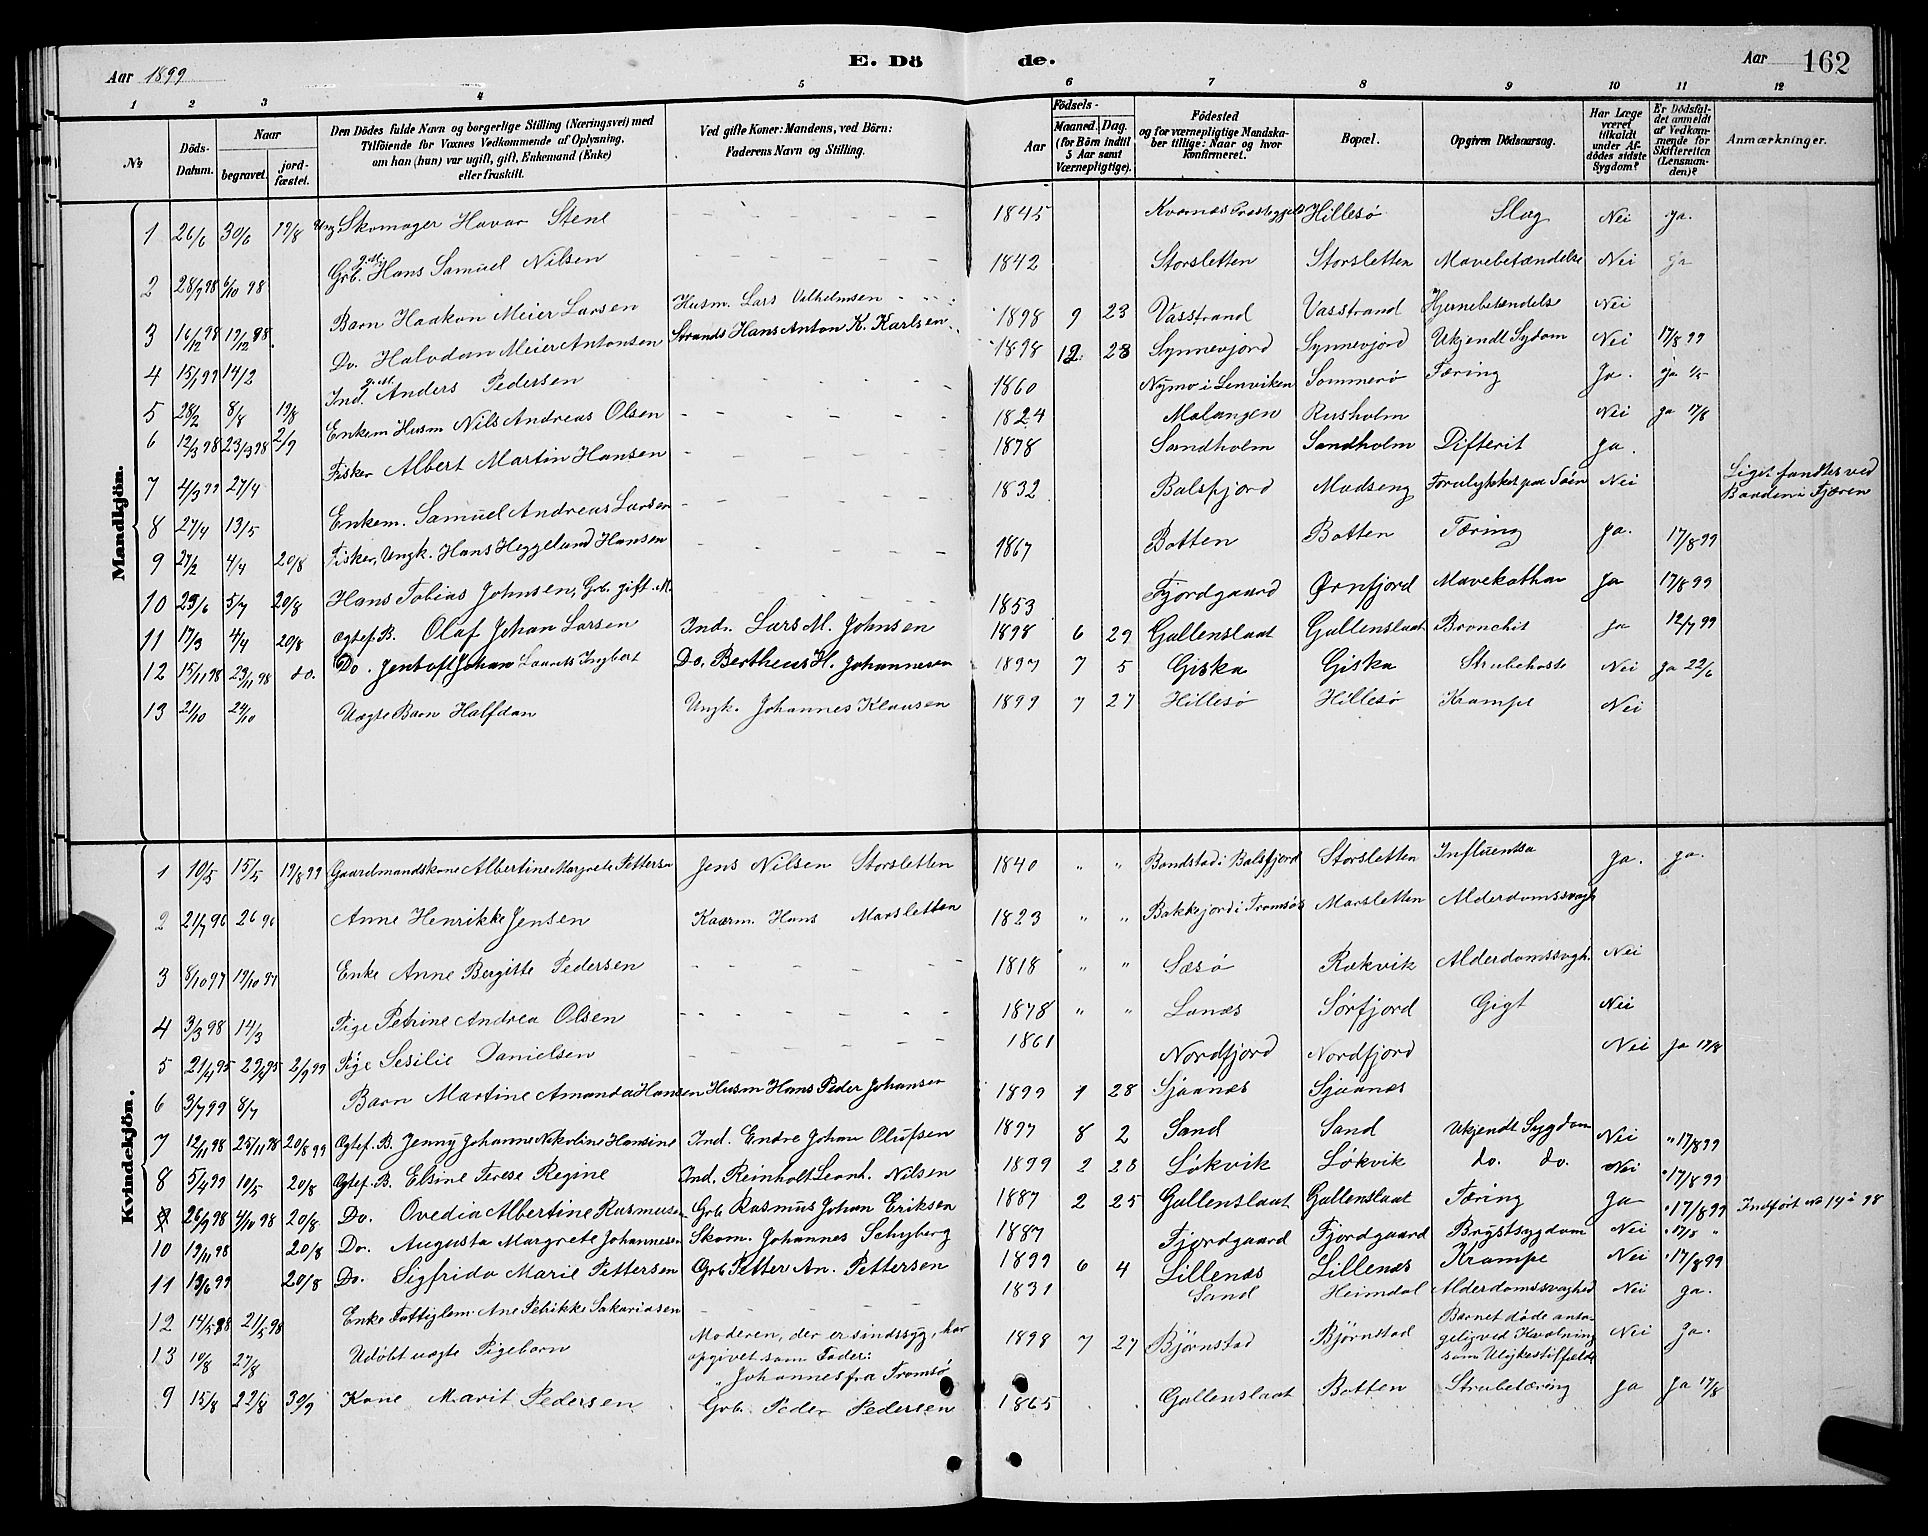 Aar 1899
E. Dö
de.
Aar
162
1 2 3 4 5 6 7 8 9 10 11 12
№
Döds-Datum.
Naar
begravet.
jord-fæstet.
Den Dödes fulde Navn og borgerlige Stilling (Næringsvei) med
Tilföiende for Voxnes Vedkommende af Oplysning,
om han (hun) var ugift, gift, Enkemand (Enke)
eller fraskilt.
Ved gifte Koner: Mandens, ved Börn:
Faderens Navn og Stilling.
Födsels-
Aar
Maaned. Dag.
(for Börn indtil
5 Aar samt
Værnepligtige).
Födested
og for værnepligtige Mandska-
ber tillige: Naar og hvor
konfirmeret.
Bopæl.
Opgiven Dödsaarsag.
Har Læge
været
tilkaldt
under Af-
dödes sidste
Sygdom?
Er Dödsfal-
det anmeldt
af Vedkom-
mende for
Skifteretten
(Lensman-
den)?
Anmærkninger.
Mandkjön.
1 26/6 30/6 19/8 Ung Skomager Havar Stene 1845 Hillesö Slag Nei ja.
2 28/9 98 6/10 98 Grb. gift Hans Samuel Nilsen 1842 Storsletten Storsletten Mavebetændelse Nei ja
3 16/12 98 19/12 98. Barn Haakon Meier Larsen Husm. Lars Vilhelmsen 1898 9 23 Vasstrand Vasstrand Hjernebetændelse Nei
4 15/1 99 14/2 Do. Halvdan Meier Antonsen Strands Hans Anton K. Karlsen 1898 12 28 Synnevjord Synnevjord Ukjendt Sygdom Nei 17/8 99
5 28/2 8/8 19/8 Ind. gift Anders Pedersen 1860 Nymo i Lenviken Sommerö Tæring Ja. ja 1/5
6 12/3 98 23/3 98 2/9 Enkem Husm Nils Andreas Olsen 1824 Malangen Rusholm Nei ja 17/8
7 4/3 99 27/4 Fisker Albert Martin Hansen 1878 Sandholm Sandholm Difterit ja.
8 27/4 13/5 Enkem. Samuel Andreas Larsen 1832 Balsfjord Madseng Forulykket paa Söen Nei Liget fandtes ved
Baaden i Fjæren
9 27/2 4/4 20/8 Fisker, Ungk. Hans Heggelund Hansen 1867 Botten Botten Tæring ja. 17/8 99
10 29/6 5/7 20/8 Hans Tobias Johnsen, Grb. gift. M. 1853 Fjordgaard Ørnfjord Mavekathar ja 17/8 99
11 17/3 4/4 20/8 Ægtef. B. Olaf Johan Larsen Indr. Lars M. Johnsen 1898 6 29 Gallenslaat Gallenslaat Bronchit ja 12/7 99
12 15/11 98 23/11 98 do. Do. Jentoft Johan Laurits Ingbert Do. Bertheus H. Johannesen 1897 7 5 Giska Giska Strubehoste Nei ja 22/6
13 21/10 24/10 Uægte Barn Halfdan Ungk. Johannes Klausen 1899 7 27 Hillesö Hillesö Krampe Nei
Kvindekjön.
1 10/5 15/5 19/8 99 Gaardmandskone Albertine Margrete Pettersen Jens Nilsen Storsletten 1840 " " Bondstad i Balsfjord Storsletten Influentsa ja. ja.
2 21/7 96 26 96 Anne Henrikke Jensen Kaarm. Hans Marsletten 1823 " " Bakkejord i Tromsös Marsletten Alderdomssvagh
3 8/10 97 19/10 97 Enke Anne Bergitte Pedersen 1818 " " Sæsö Rækvik Alderdomssvagh. Nei
4 3/3 98 14/3 Pige Petrine Andrea Olsen 1878 " " Lanæs Sörfjord Gigt Nei
5 21/4 95 29/4 95 2/9 99 Pige Sesilie Danielsen 1861 Nordfjord Nordfjord Nei ja 17/8
6 3/7 99 8/7 Barn Martine Amanda Hansen Husm Hans Peder Johansen 1899 1 28 Sjaanæs Sjaanæs
7 12/11 98 25/11 98 20/8 99 Ægtef. B. Jenny Johanne Nikoline Hansine Ind. Endre Johan Olufsen 1897 8 2 Sand Sand Ukjendt Sygdom Nei " 17/8 99
8 5/4 99 10/5 20/8 Ægtef. B. Elsine Terese Regine Ind. Reinholt Leonh. Nilsen 1899 2 28 Lökvik Lökvik do. do. Nei " 17/8 99
9 26/9 98 4/10 98 20/8 Do. Ovedia Albertine Rasmussen Grb Rasmus Johan Eriksen 1887 2 25 Gallenslaat Gallenslaat Tæring ja " 17/8 99 Indfört № 14 i 98
10 19/11 98 20/8 Do. Augusta Margrete Johannesen Skom. Johannes Schyberg 1887 Fjordgaard Fjordgaard Brystsygdom Nei " 17/8 "
11 13/6 99 20/8 Do. Sigfrida Marie Pettersen Grb Petter An. Pettersen 1899 6 4 Lillenæs Lillenæs Krampe Nei " 17/8 99
12 14/5 98 21/5 98 Enke Fattiglem Ane Petrikke Sakariasen 1831 Sand Heimdal Alderdomssvaghed Nei ja.
13 10/8 27/8 Udöbt uægte Pigebarn Moderen, der er sindssyg, har
opgivet som Fader:
" Johannes fra Tromsö 1898 7 27 Björnstad Björnstad Barnet döde anta-
gelig ved Kvælning
som Ulykkestilfælde Nei Ja.
9 15/8 22/8 30/9 Kone Marit Pedersen Grb. Peder Pedersen 1865 Gallenslaat Botten Strubetæring ja ja 17/8